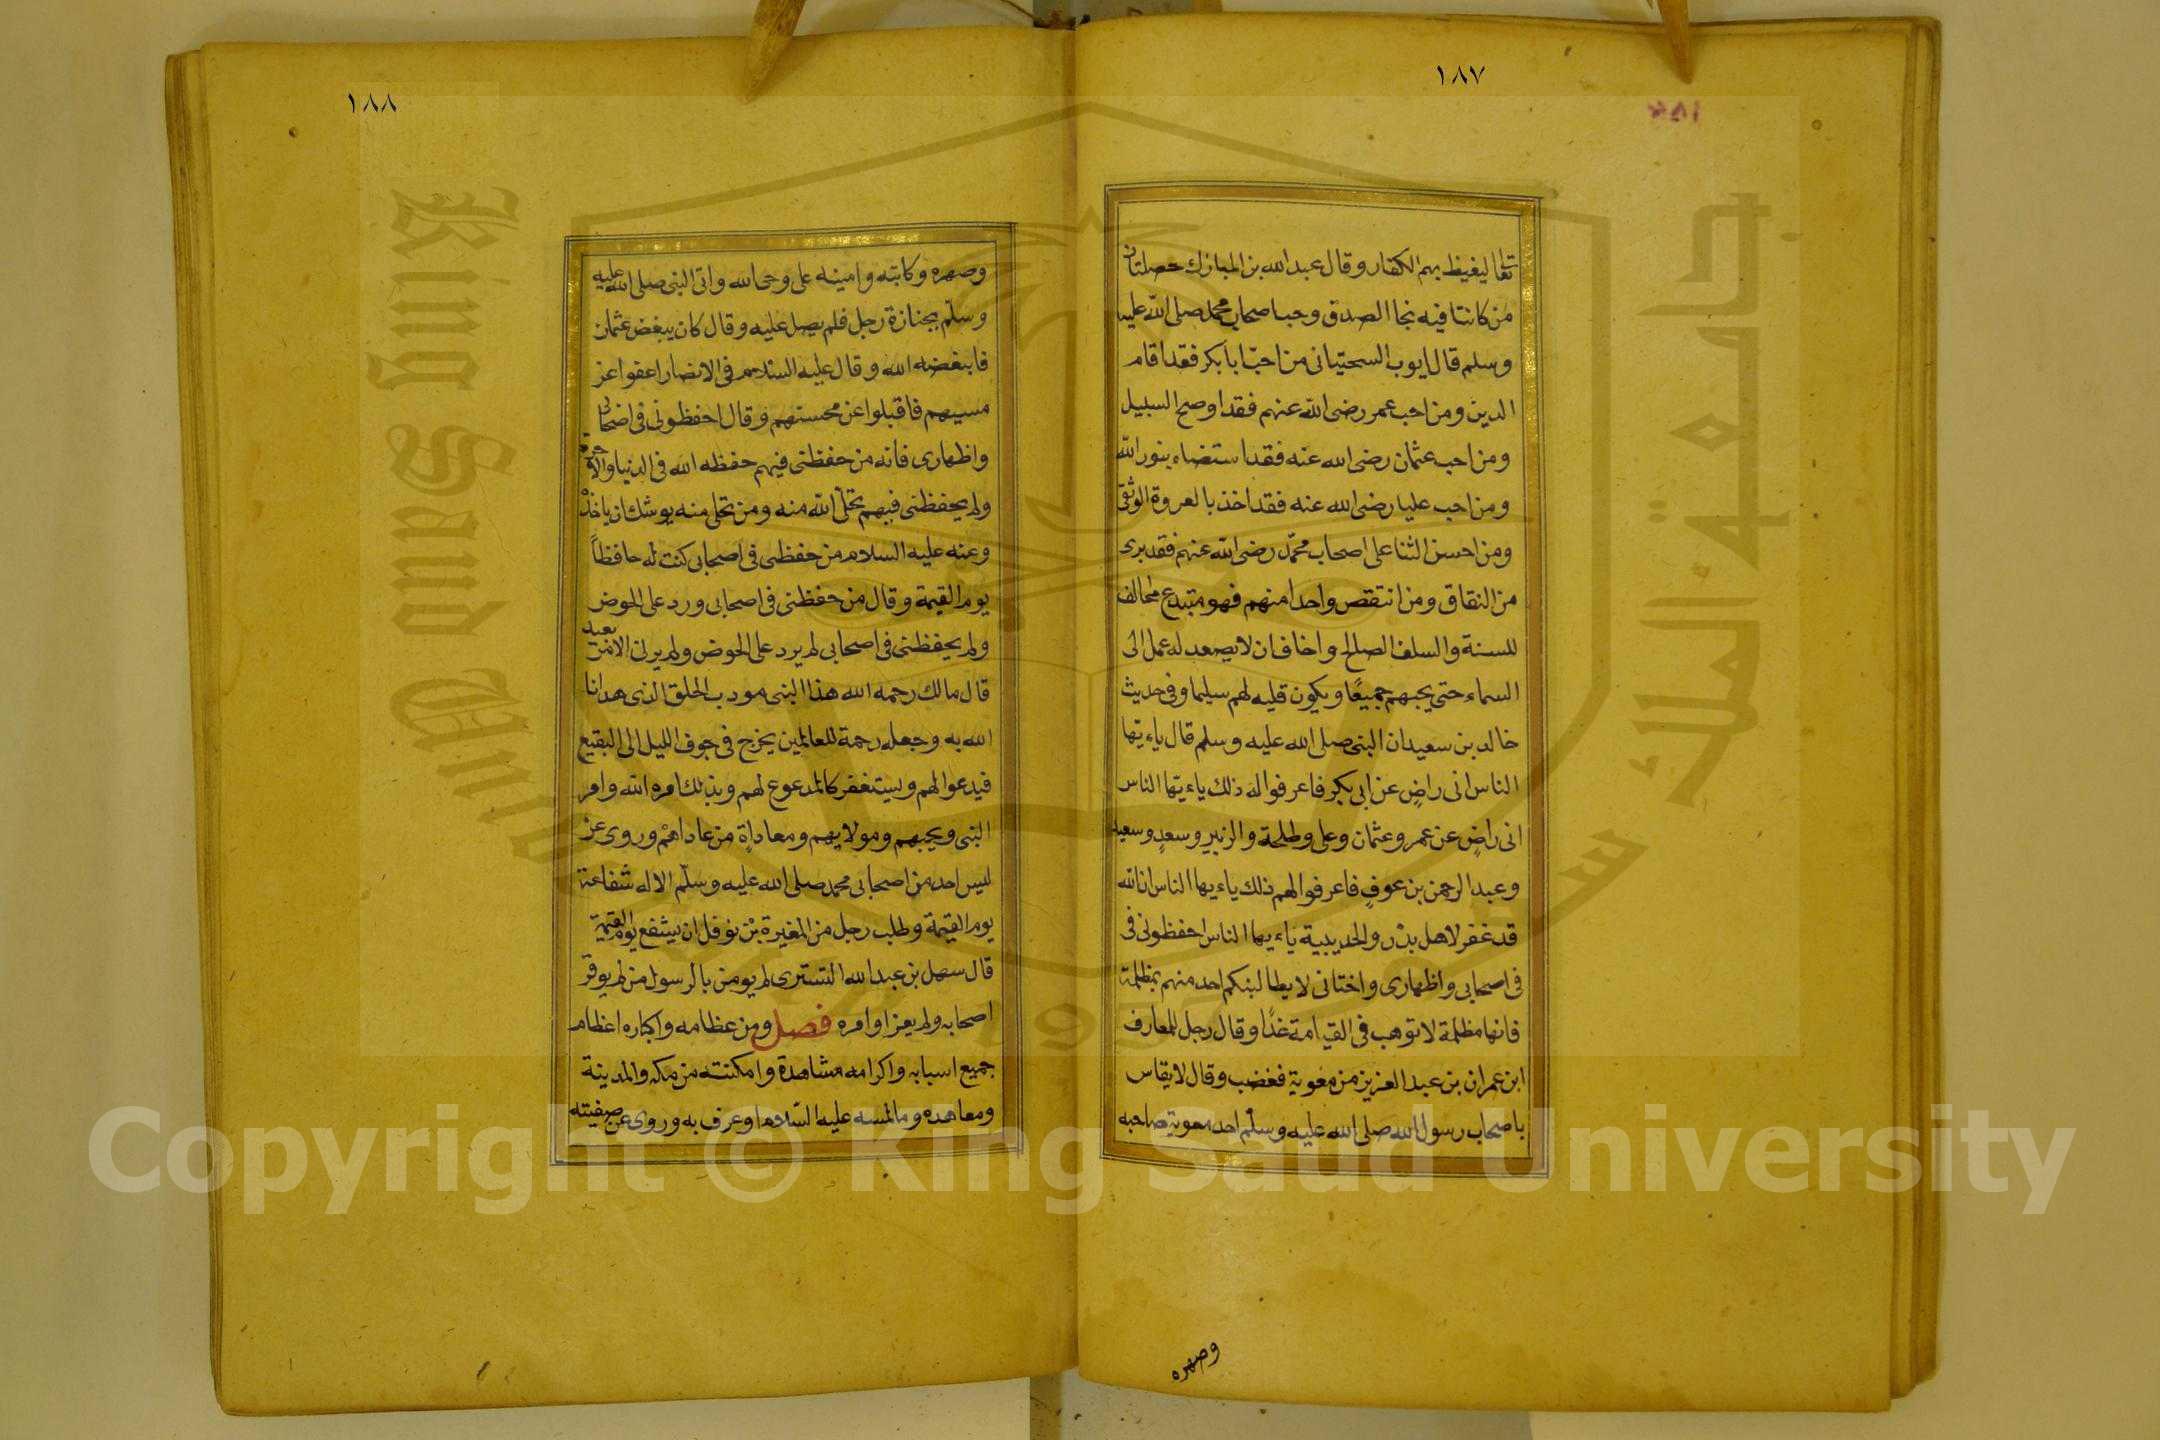 ١٨٧
تعالى ليغيظ بهم الكفار وقال عبد الله بن المبارك خصلتان
من كانتا فيه نجا الصدق وحب اصحاب محمد صلى الله عليه
وسلم قال ايوب السحتيانى من احبّ ابا بكر فقد اقام
الدين ومن احب عمر رضى الله عنهم فقد اوضح السبيل
ومن احب عثمان رضى الله عنه فقد استضاء بنور الله
ومن احب عليا رضى الله عنه فقد اخذ بالعروة الوثقى
ومن احسن الثنا على اصحاب محمّد رضى الله عنهم فقد برى
من النقاق ومن انتقص واحدا منهم فهو مبتدع مخالف
للسنة والسلف الصالح واخاف ان لا يصعد له عمل الى
السماء حتى يحبهم جميعًا ويكون قلبه لهم سليما وفى حديث
خالد بن سعيد ان النبى صلى الله عليه وسلم قال ياءيّها
الناس انى راضٍ عن ابى بكر فاعرفوا له ذلك ياءيّها الناس
انى راضٍ عن عمر وعثمان وعلى وطلحة والزبير وسعدٍ وسعيد
وعبد الرحمن بن عوفٍ فاعرفوا لهم ذلك ياءيها الناس ان الله
قد غفر لاهل بدْر والحديبية ياءيها الناس احفظونى فى
فى اصحابى واظهارى واختانى لا يطالبنكم احد منهم بمظلمة
فانها مظلمة لا توهب فى القيامة غدًا وقال رجل للمعارف
ابن عمران بن عبد العزيز من معوية فغضب وقال لا يقاس
باصحاب رسول الله صلى الله عليه وسلّم احد معوية صاحبه
وصهره
١٨٨
وصهره وكاتبه وامينه على وحى الله واتى النبى صلى الله عليه
وسلّم بجنازة رجل فلم يصل عليه وقال كان يبغض عثمان
فابغضه الله وقال عليه السّلام فى الانصار اعفوا عن
مسيهم فاقبلوا عن محسنهم وقال احفظونى فى اصحابى
واظهارى فانه من حفظنى فيهم حفظه الله فى الدنيا والاخرة
ولم يحفظنى فيهم تخلّى الله منه ومن تخلى منه يوشك ان ياخذْ
وعنه عليه السلام من حفظنى فى اصحابى كنت له حافظاً
يوم القيمة وقال من حفظنى فى اصحابى ورد على الحوض
ولم يحفظنى فى اصحابى لم يرد على الحوض ولم يرنى الا من بعيد
قال مالك رحمه الله هذا النبى مودب الخلق الذى هدانا
الله به وجعله رحمة للعالمين يخرج فى جوف الليل الى البقيع
فيدعوا لهم ويستغفر كالمدعوع لهم وبذلك امره الله وامر
النبى ويحبهم ومولايهم ومعاداةٍ من عاداهمْ وروى عن
ليس احد من اصحابى محمد صلى الله عليه وسلّم الا له شفاعة
يوم القيمة وطلب رجل من المغيرة بْن نوفل ان يشفع يوم القيمة
قال سهل بن عبد الله التسترى لم يومن بالرسول من لم يوقر
اصحابه ولم يعز اوامره فصل ومن عظامه واكباره اعظام
جميع اسبابه واكرامه مشاهدة وامكنته من مكه والمدينة
ومعاهده ومالمسه عليه السّلام اوعرف به وروى عن صفيته
King Saud University
جامعة الملك سعود
1957
Copyright © King Saud University